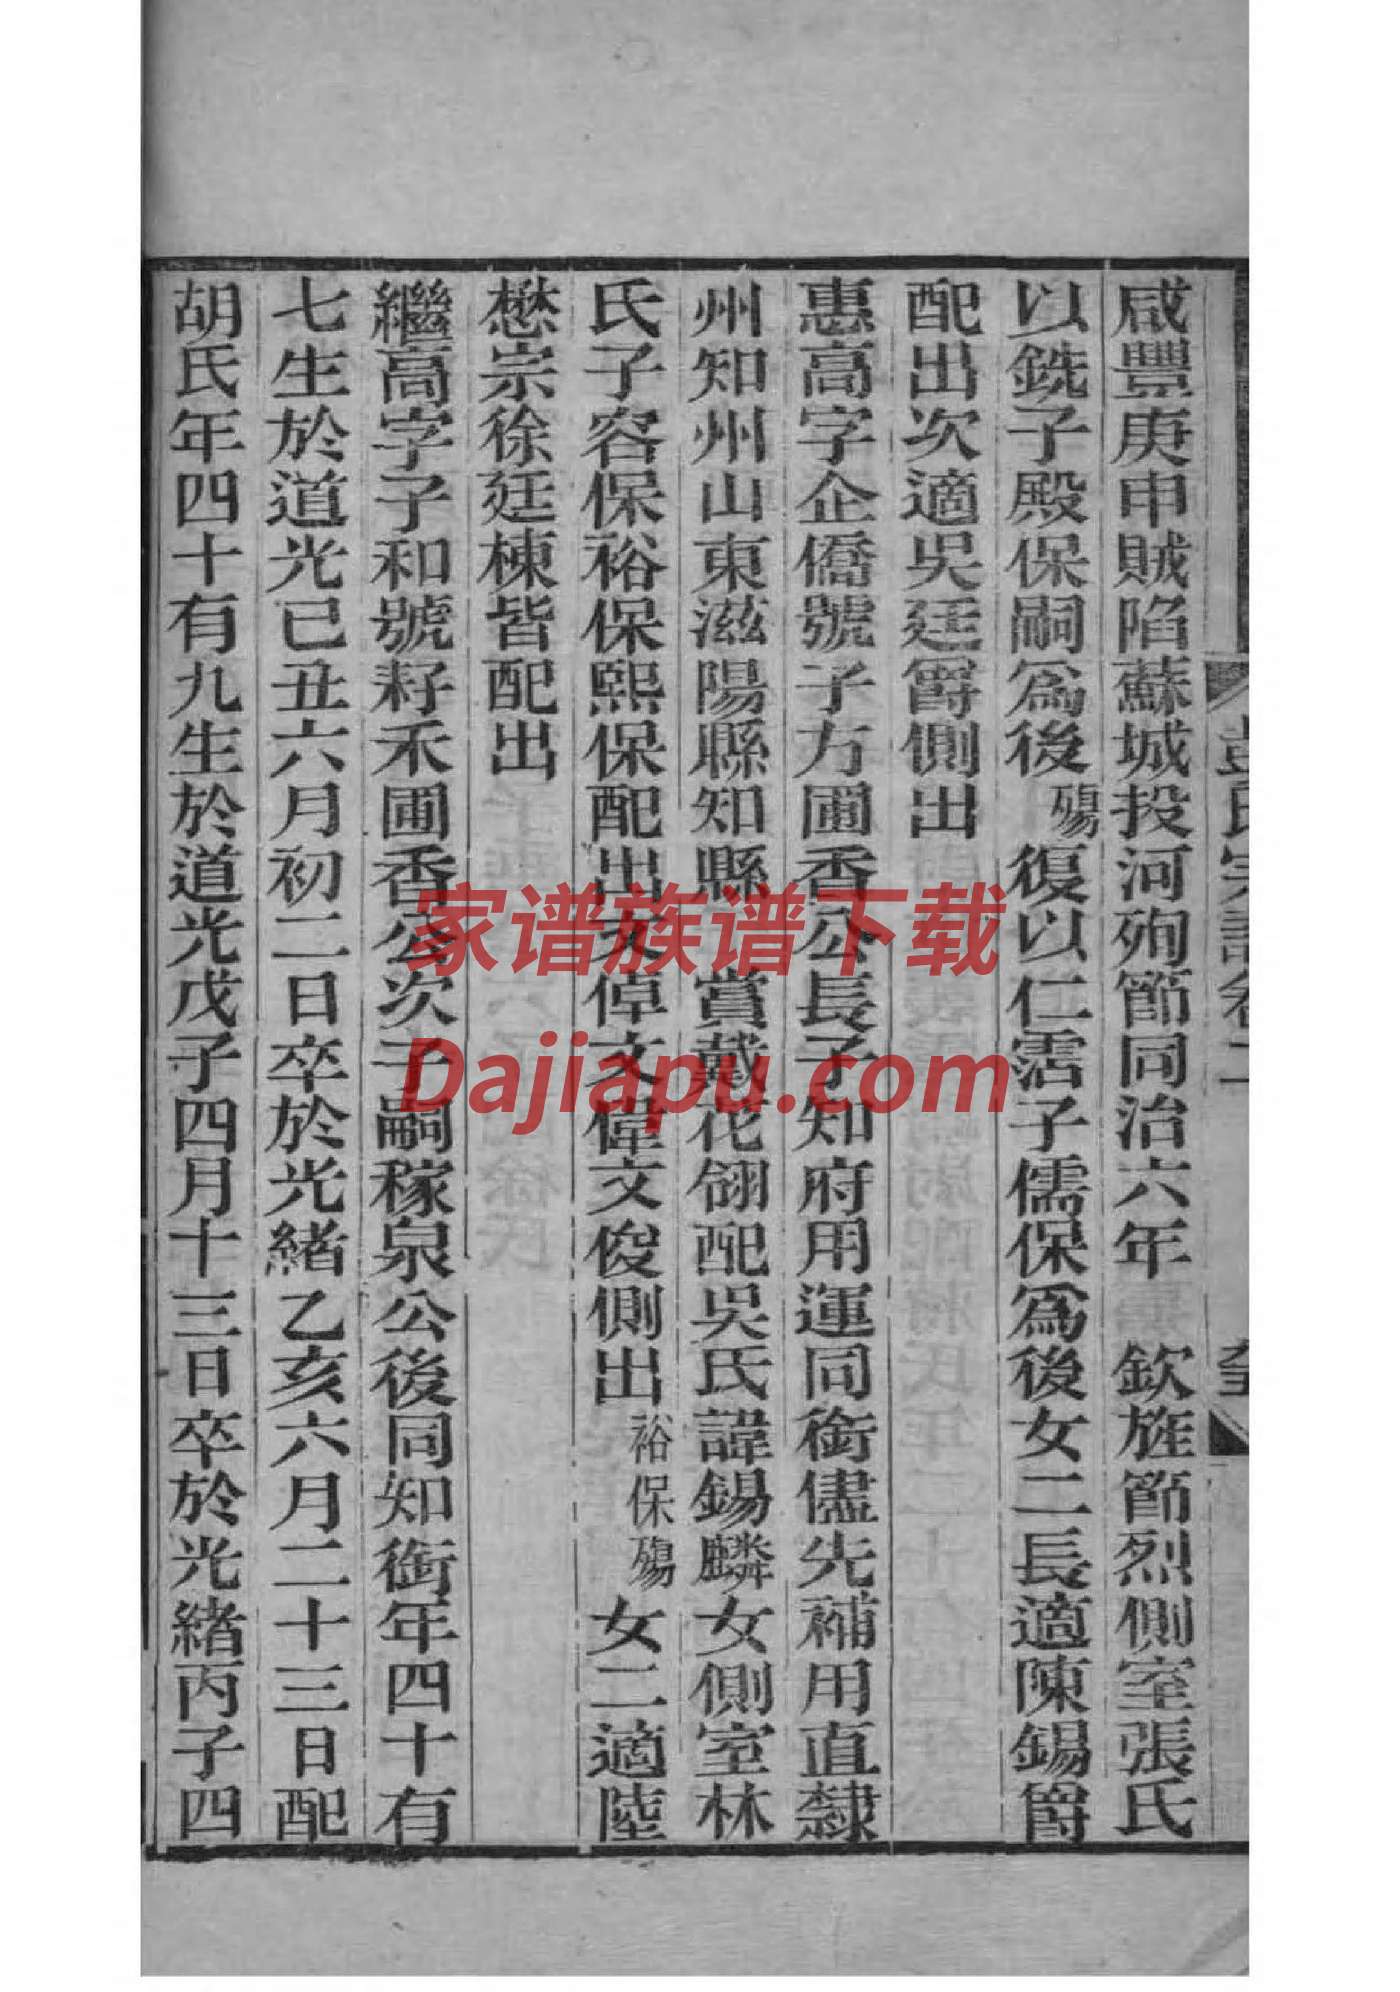 咸豐庚申賊陷蘇城投河殉節同治六年 欽旌節烈側室張氏
以銑子殿保嗣為後殤復以仁霑子儒保為後女二長適陳錫爵
配出次適吳廷爵側出
惠高字企僑號子方圃香公長子知府用運同銜儘先補用直隸
州知州山東滋陽縣知縣 賞戴花翎配吳氏諱錫麟女側室林
氏子容保裕保熙保配出文倬文偉文俊側出裕保殤女二適陸
懋宗徐廷棟皆配出
繼高字子和號耔禾圃香公次子嗣稼泉公後同知銜年四十有
七生於道光己丑六月初二日卒於光緒乙亥六月二十三日配
胡氏年四十有九生於道光戊子四月十三日卒於光緒丙子四
家谱族谱下载
Dajiapu.com